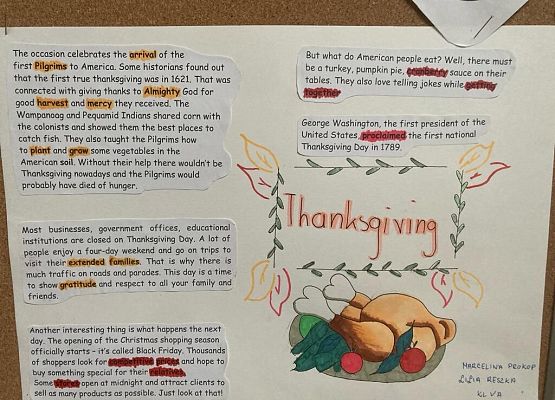 The occasion celebrates the arrival of the
first Pilgrims to America. Some historians found out
that the first true thanksgiving was in 1621. That was
connected with giving thanks to Almighty God for
good harvest and mercy they received. The
Wampanoag and Pequamid Indians shared corn with
the colonists and showed them the best places to
catch fish. They also taught the Pilgrims how
to plant and grow some vegetables in the
American soil. Without their help there wouldn't be
Thanksgiving nowadays and the Pilgrims would
probably have died of hunger.
Most businesses, government offices, educational
institutions are closed on Thanksgiving Day. A lot of
people enjoy a four-day weekend and go on trips to
visit their extended families. That is why there is
much traffic on roads and parades. This day is a time
to show gratitude and respect to all your family and
friends.
Another interesting thing is what happens the next
day. The opening of the Christmas shopping season
officially starts – it's called Black Friday. Thousands
of shoppers look for competitive prices and hope to
buy something special for their relatives.
Some stores open at midnight and attract clients to
sell as many products as possible. Just look at that!
But what do American people eat? Well, there must
be a turkey, pumpkin pie, cranberry sauce on their
tables. They also love telling jokes while getting
together
George Washington, the first president of the
United States, proclaimed the first national
Thanksgiving Day in 1789.
Thanksgiving
MARCELINA PROKOP
ZUZIA RESZKA
KL VA